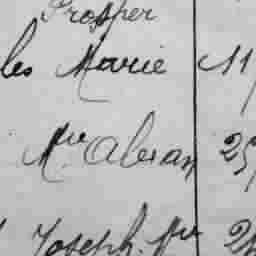 Prosper
les Marie 11
Mre Alexan 25
Joseph. Mre 2